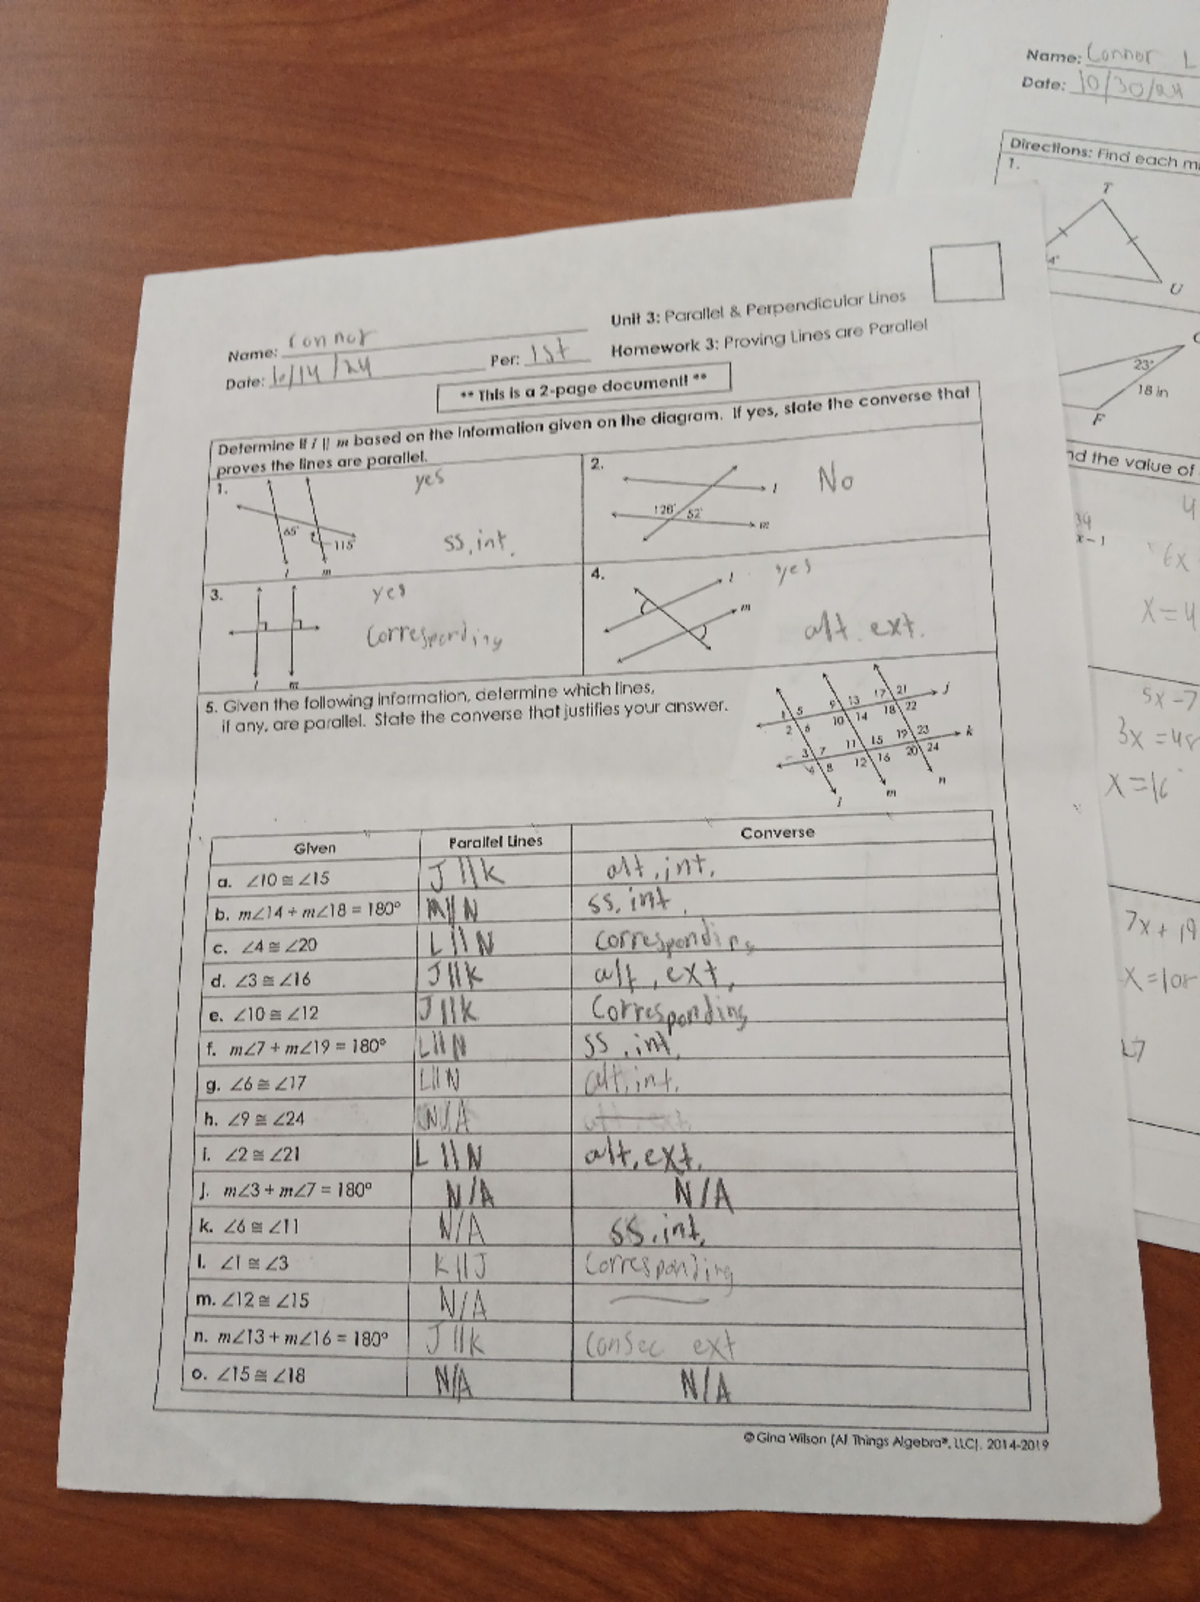 Name: Connor L
Date: 10/30/24
Directions: Find each m
1.
T
4°
U
23°
18 in
F
nd the value of
x-1
6x
x=4
5x-7
3x=48
x=16
7x+19
x=108
Unit 3: Parallel & Perpendicular Lines
Name: Connor
Homework 3: Proving Lines are Parallel
Date: Per: 1st
** This is a 2-page document! **
Determine if l || m based on the information given on the diagram. If yes, state the converse that
proves the lines are parallel.
1. yes
65°
115°
l m
ss, int.
2. No
l
128° 52°
m
3. yes
Corresponding
l m
4. yes
l
m
alt. ext.
5. Given the following information, determine which lines,
if any, are parallel. State the converse that justifies your answer.
1 5 9 13 17 21 j
2 6 10 14 18 22
3 7 11 15 19 23 k
4 8 12 16 20 24
l m n
Given Parallel Lines Converse
a. ∠10 ≅ ∠15 J||k alt, int.
b. m∠14 + m∠18 = 180° M||N ss, int.
c. ∠4 ≅ ∠20 L||N Corresponding
d. ∠3 ≅ ∠16 J||k alt, ext,
e. ∠10 ≅ ∠12 J||k Corresponding
f. m∠7 + m∠19 = 180° L||N ss, int.
g. ∠6 ≅ ∠17 L||N alt, int.
h. ∠9 ≅ ∠24 N/A
i. ∠2 ≅ ∠21 L||N alt, ext.
j. m∠3 + m∠7 = 180° N/A N/A
k. ∠6 ≅ ∠11 N/A ss, int,
l. ∠1 ≅ ∠3 K||J Corresponding
m. ∠12 ≅ ∠15 N/A
n. m∠13 + m∠16 = 180° J||k Consec ext
o. ∠15 ≅ ∠18 N/A N/A
© Gina Wilson (All Things Algebra®, LLC), 2014-2019